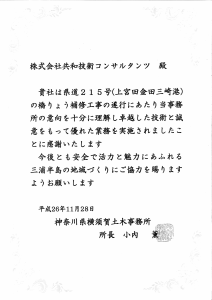 株式会社共和技術コンサルタンツ 殿
貴社は県道２１５号(上宮田金田三崎港)
の橋りょう補修工事の遂行にあたり当事務
所の意向を十分に理解し卓越した技術と誠
意をもって優れた業務を実施されましたこ
とに感謝いたします
今後とも安全で活力と魅力にあふれる
三浦半島の地域づくりにご協力を賜ります
ようお願いします
平成26年11月28日
神奈川県横須賀土木事務所
所長 小内 薫